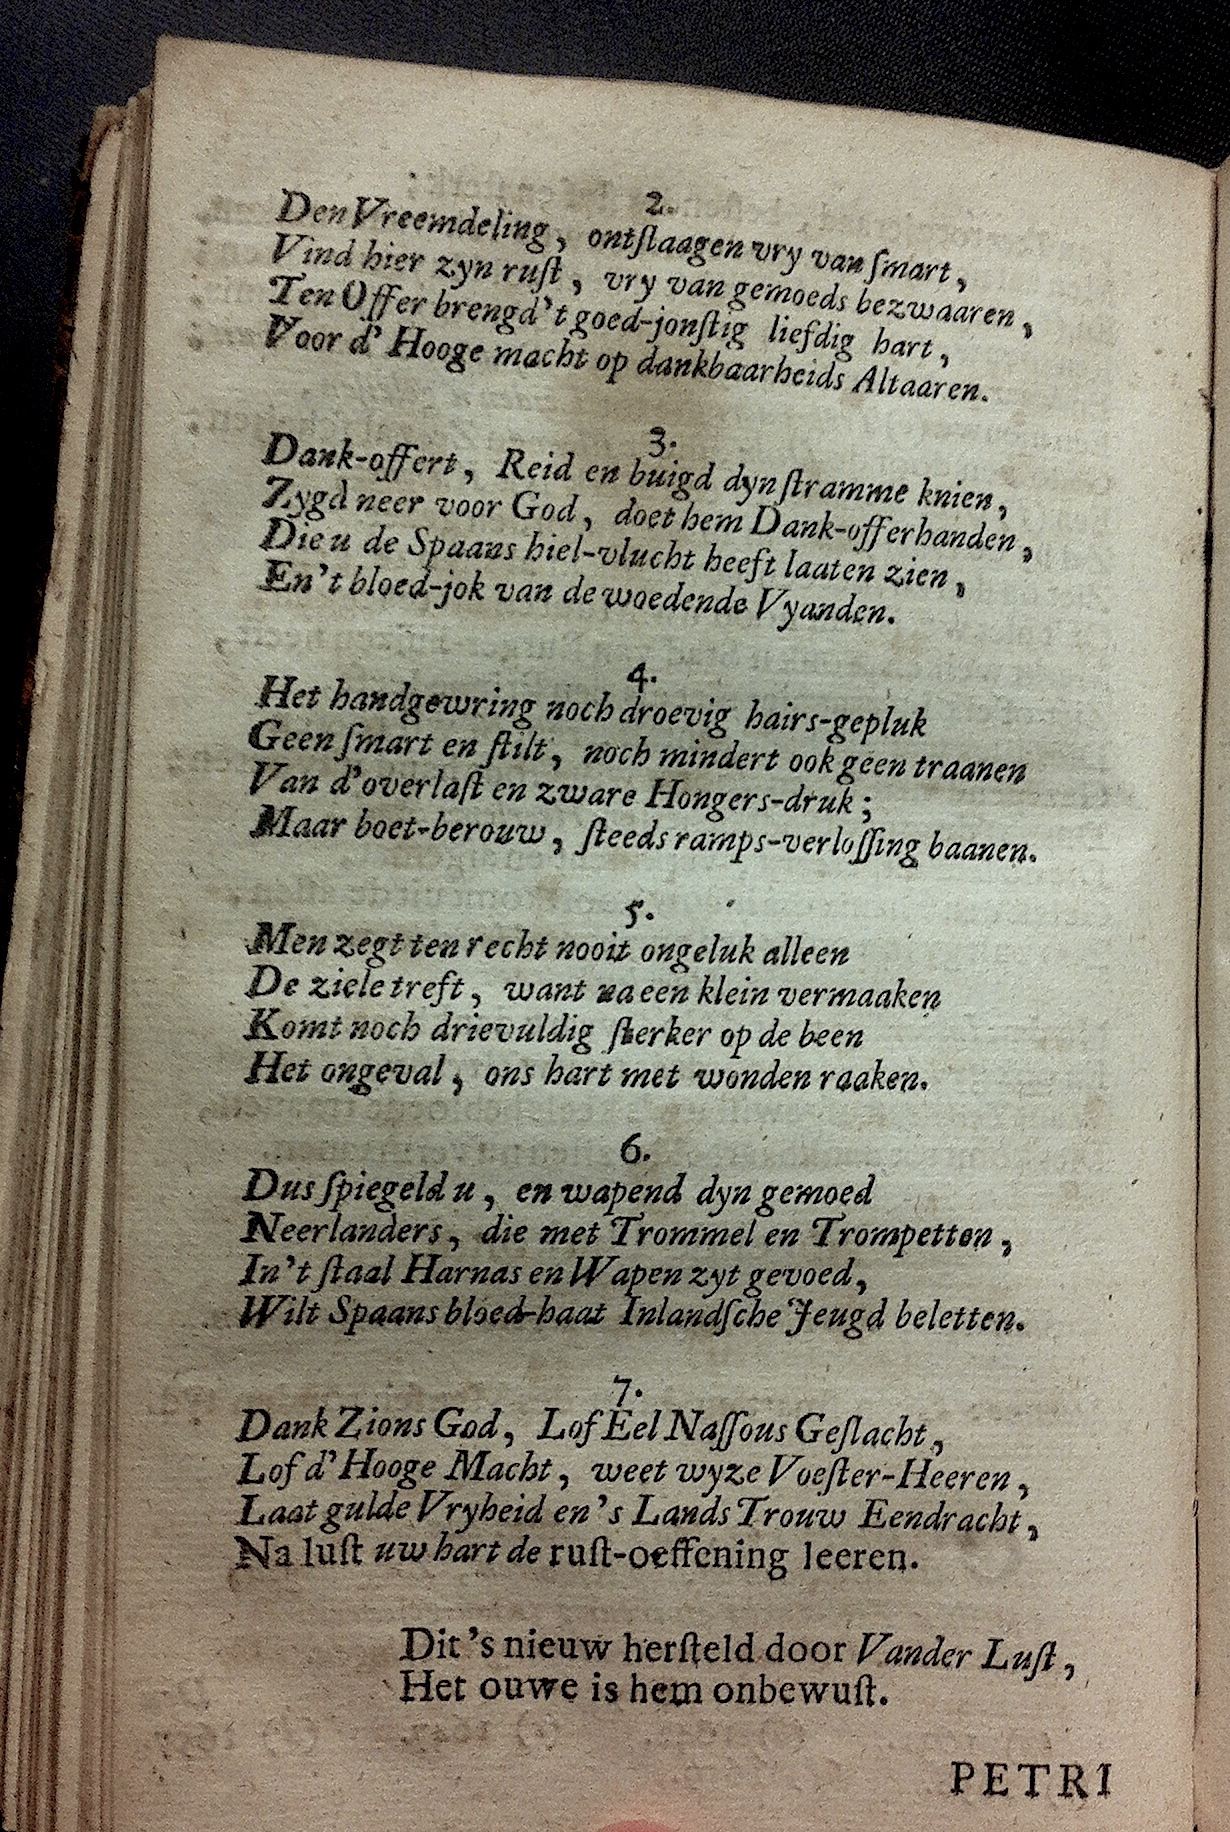 2.
Den Vreemdeling, ontſlaagen vry van ſmart,
Vind hier zyn ruſt, vry van gemoeds bezwaaren,
Ten Offer brengd't goed-jonſtig liefdig hart,
Voor d' Hooge macht op dankbaarheids Altaaren.
3.
Dank-offert, Reid en buigd dyn ſtramme knien,
Zygd neer voor God, doet hem Dank-offerhanden,
Die u de Spaans hiel-vlucht heeft laaten zien,
En't bloed-jok van de woedende Vyanden.
4.
Het handgewring noch droevig hairs-gepluk
Geen ſmart en ſtilt, noch mindert ook geen traanen
Van d'overlaſt en zware Hongers-druk;
Maar boet-berouw, ſteeds ramps-verloſſing baanen.
5.
Men zegt ten recht nooit ongeluk alleen
De ziele treft, want na een klein vermaaken
Komt noch drievuldig ſterker op de been
Het ongeval, ons hart met wonden raaken.
6.
Dus ſpiegeld u, en wapend dyn gemoed
Neerlanders, die met Trommel en Trompetten,
In't ſtaal Harnas en Wapen zyt gevoed,
Wilt Spaans bloed-haat Inlandſche Jeugd beletten.
7.
Dank Zions God, Lof Eel Naſſous Geſlacht,
Lof d'Hooge Macht, weet wyze Voeſter-Heeren,
Laat gulde Vryheid en's Lands Trouw Eendracht,
Na luſt uw hart de ruſt-oeffening leeren.
Dit's nieuw herſteld door Vander Luſt,
Het ouwe is hem onbewuſt.
PETRI